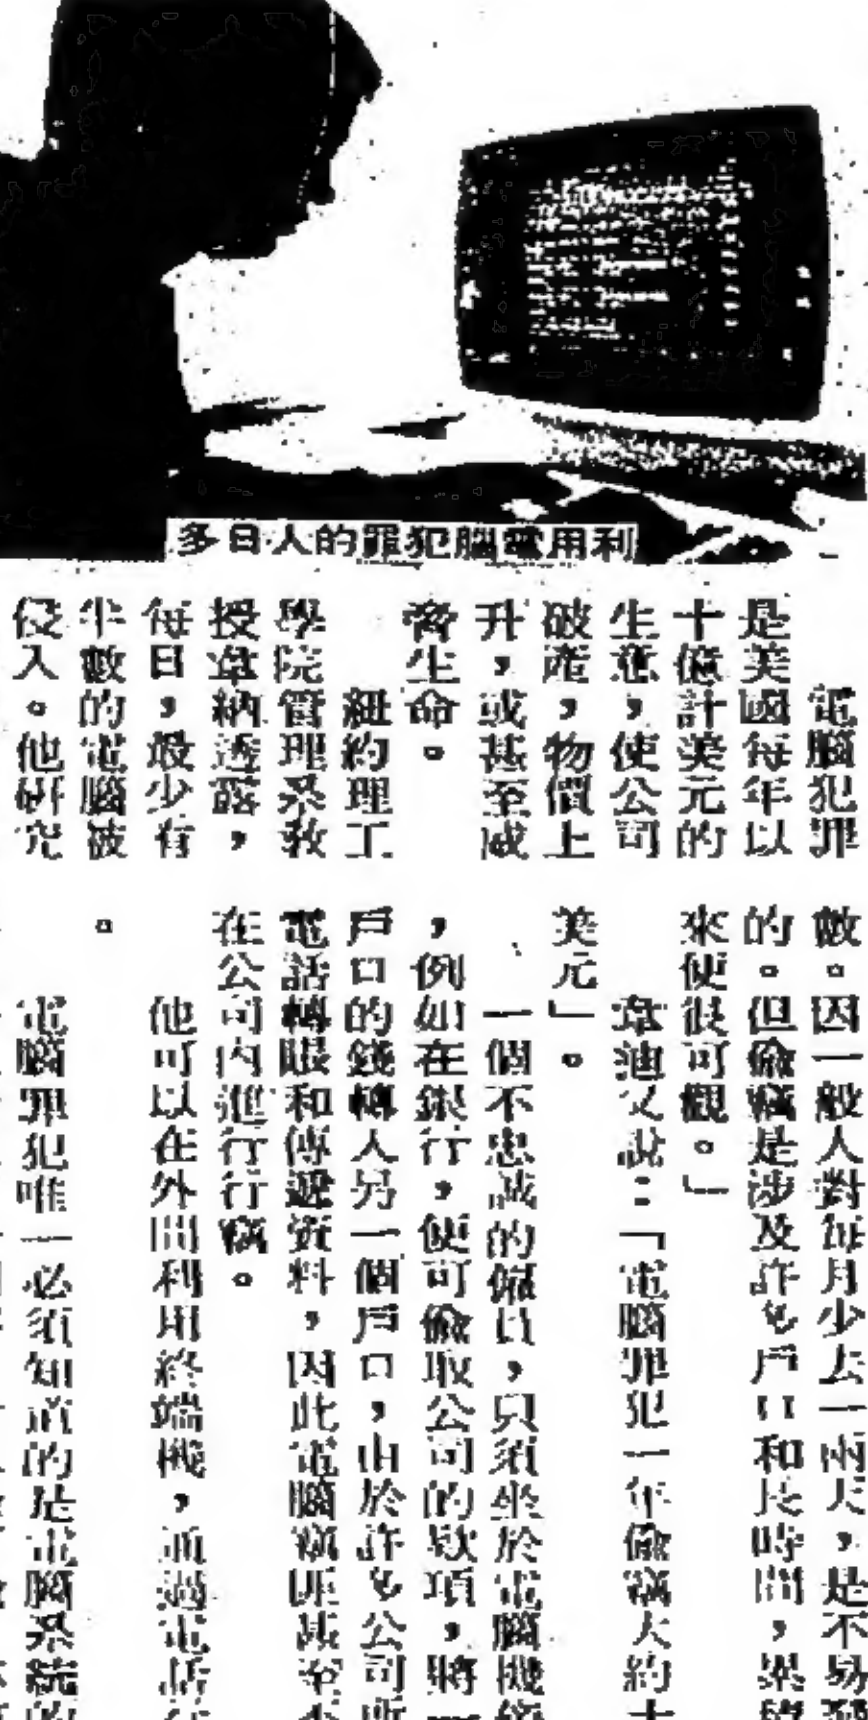 利用電腦犯罪的人日多
電腦犯罪
是美國每年以
十億計美元的
生意，使公司
破產，物價上
升，或甚至威
脅生命。
紐約理工
學院管理系教
授韋納透露，
每日，最少有
半數的電腦被
侵入。他研究
數。因一般人對每月少去一兩天，是不易
的。但偷竊是涉及許多戶口和長時間，累積
來便很可觀。」
韋迪又說：「電腦罪犯一年偷竊大約十
美元」。
一個不忠誠的僱員，只須坐於電腦機
，例如在銀行，便可偷取公司的款項，將一
戶口的錢轉入另一個戶口，由於許多公司
電話轉賬和傳遞資料，因此電腦竊匪甚至
在公司內進行行竊。
他可以在外間利用終端機，通過電話
。
電腦罪犯唯一必須知道的是電腦系統的